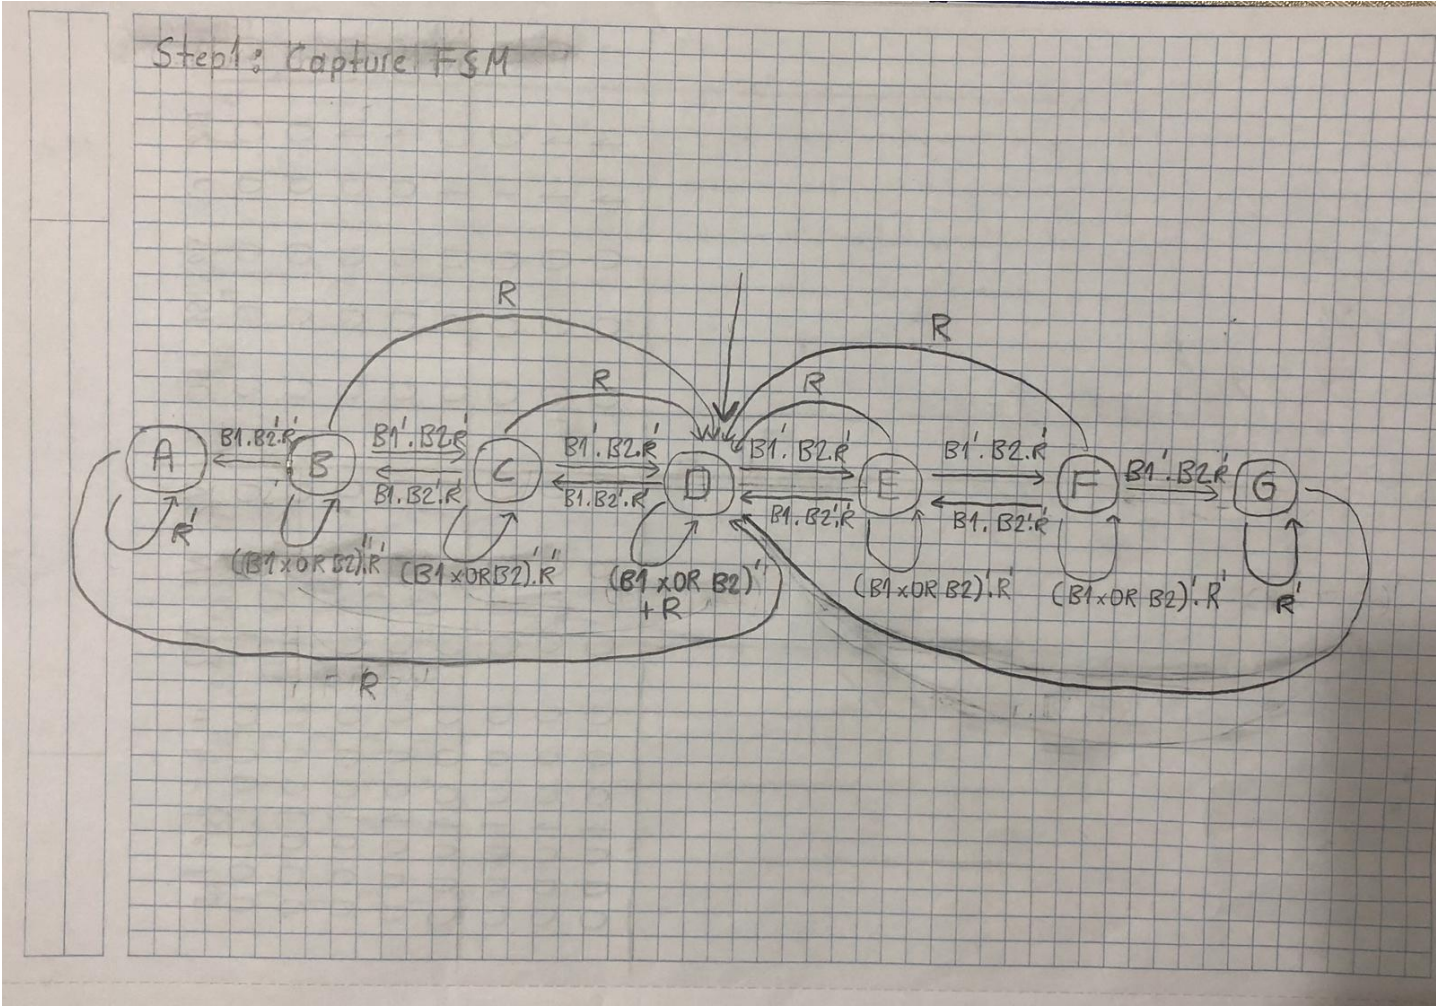 Step1: Capture FSM
R
R
R
R
B1.B2'.R'
B1'.B2.R'
B1'.B2.R'
B1'.B2.R'
B1'.B2.R'
B1'.B2.R'
A
B
C
D
E
F
G
B1.B2'.R'
B1.B2'.R'
B1.B2'.R'
B1.B2'.R'
R'
(B1 xOR B2)'.R'
(B1 xOR B2)'.R'
(B1 xOR B2)'
+ R
(B1 xOR B2)'.R'
(B1 xOR B2)'.R'
R'
R